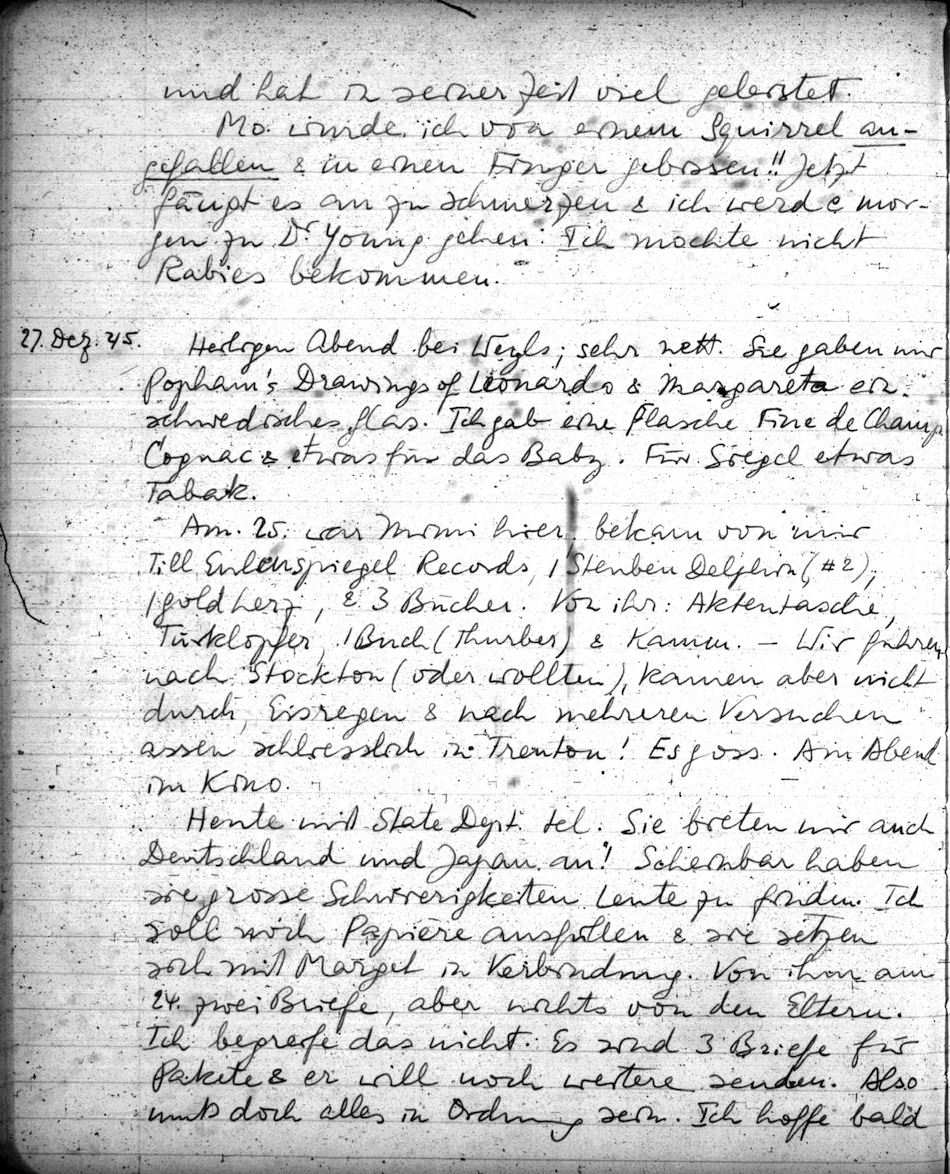 und hat in seiner Zeit viel geleistet.
Mo. wurde ich von einem Squirrel an-
gefallen & in einen Finger gebissen!! Jetzt
fängt es an zu schmerzen & ich werde mor-
gen zu Dr Young gehen. Ich möchte nicht
Rabies bekommen.
27. Dez. 45. Heiligen Abend bei Weyls; sehr nett. Sie gaben mir
Popham's Drawings of Leonardo & Margareta ein
schwedisches Glas. Ich gab eine Flasche Fine de Champ.
Cognac & etwas für das Baby. Für Siegel etwas
Tabak.
Am. 25. war Mimi hier, bekam von mir
Till Eulenspiegel Records, 1 Steuben Delphin (#2),
1 goldherz, & 3 Bücher. Von ihr: Aktentasche,
Türklopfer, 1 Buch (Thurber) & Kamm. – Wir fuhren
nach Stockton (oder wollten), kamen aber nicht
durch, Eisregen & nach mehreren Versuchen
assen schliesslich in Trenton! Es goss. Am Abend
im Kino.
Heute mit State Dept. tel. Sie bieten mir auch
Deutschland und Japan an! Scheinbar haben
sie grosse Schwierigkeiten Leute zu finden. Ich
soll noch Papiere ausfüllen & sie setzen
sich mit Marget in Verbindung. Von ihm am
24. zwei Briefe, aber nichts von den Eltern.
Ich begreife das nicht. Es sind 3 Briefe für
Pakete & er will noch weitere senden. Also
muss doch alles in Ordnung sein. Ich hoffe bald